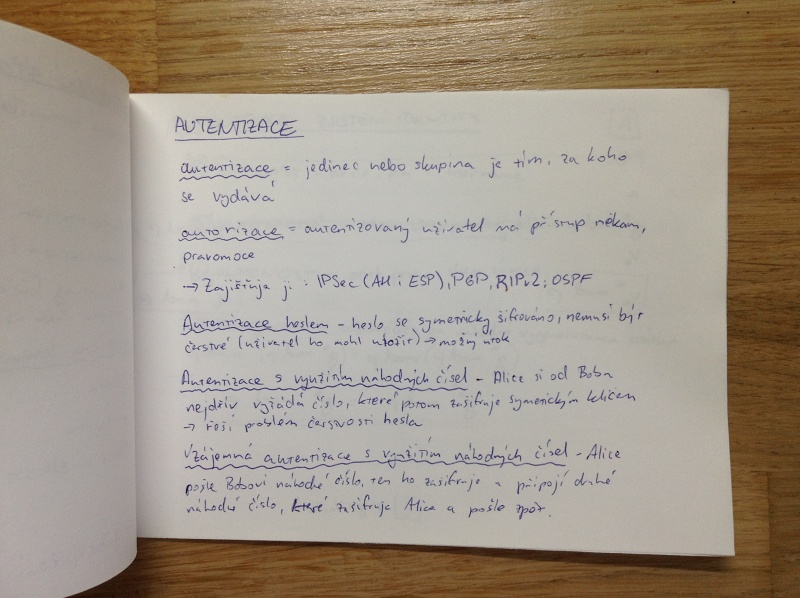 AUTENTIZACE
autentizace = jedinec nebo skupina je tím, za koho
se vydává
autorizace = autentizovaný uživatel má přístup někam,
pravomoce
→ Zajišťuje ji: IPSec (AH i ESP), PGP, RIPv2, OSPF
Autentizace heslem - heslo se symetricky šifrováno, nemusí být
čerstvé (uživatel ho mohl uložit) → možný útok
Autentizace s využitím náhodných čísel - Alice si od Boba
nejdřív vyžádá číslo, které potom zašifruje symetrickým klíčem
→ řeší problém čerstvosti hesla
Vzájemná autentizace s využitím náhodných čísel - Alice
pošle Bobovi náhodné číslo, ten ho zašifruje a připojí druhé
náhodné číslo, které zašifruje Alice a pošle zpět.